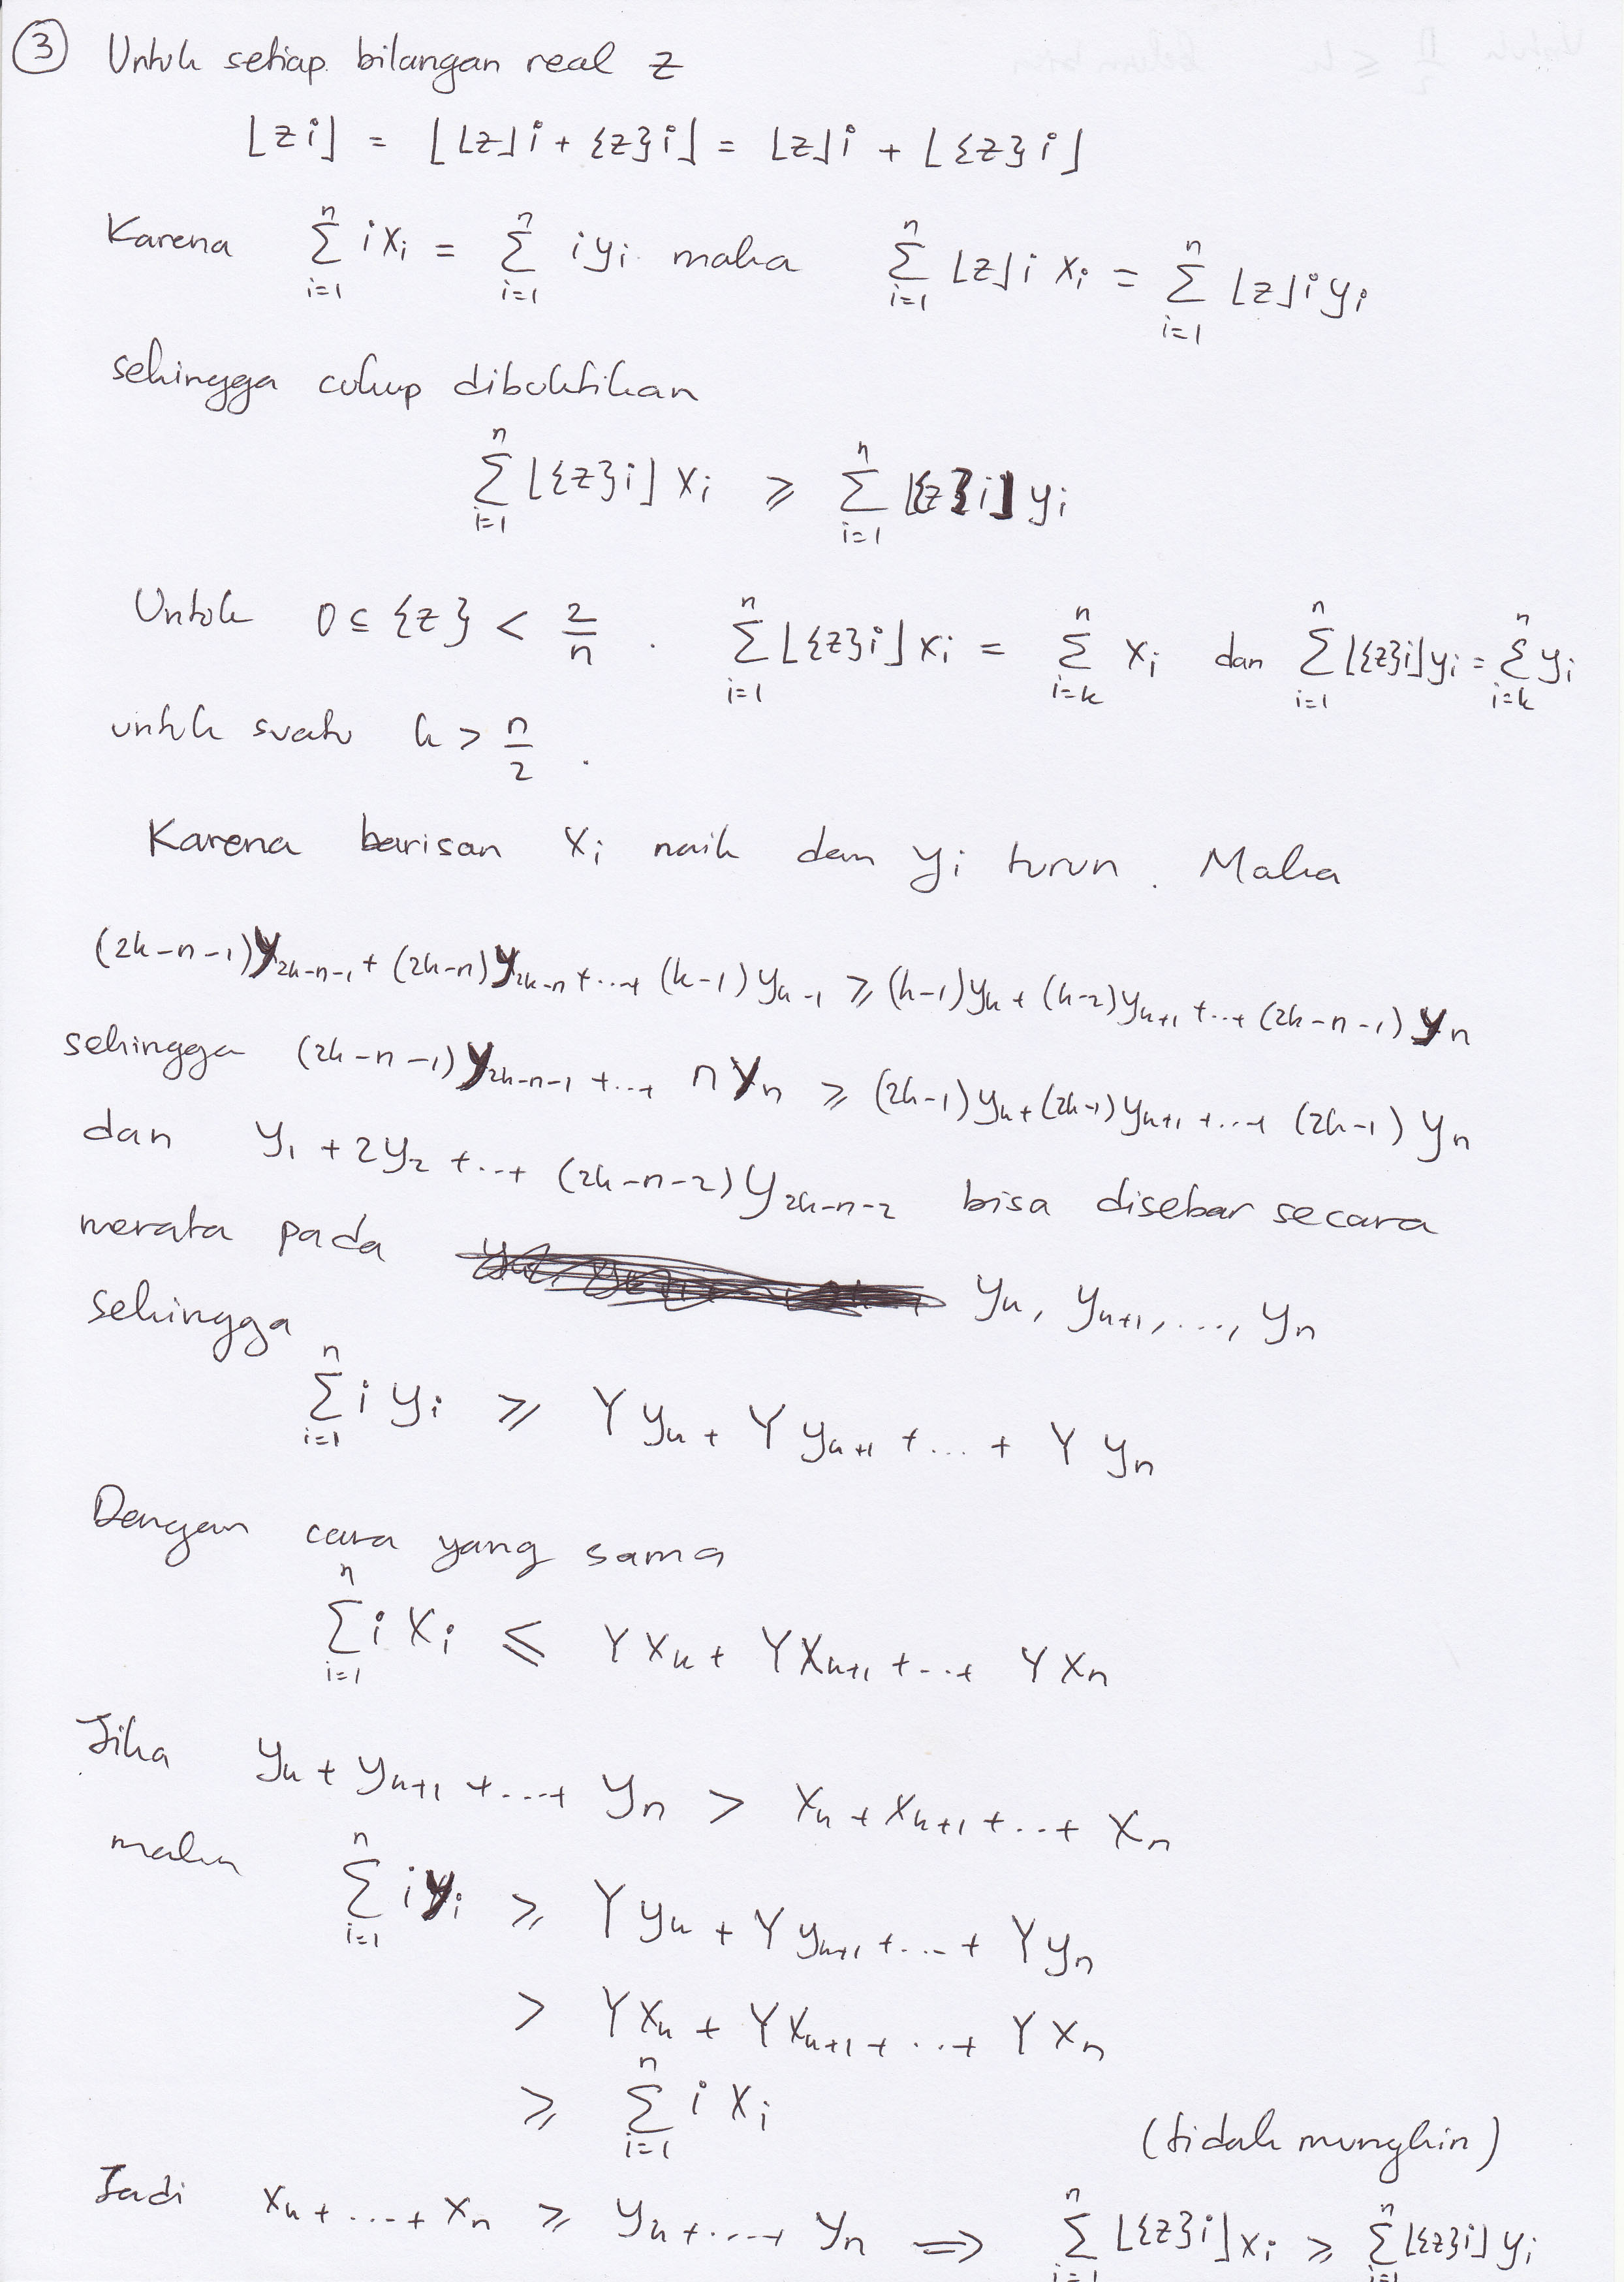 ③ Untuk setiap bilangan real z
⌊zi⌋ = ⌊⌊z⌋i + {z}i⌋ = ⌊z⌋i + ⌊{z}i⌋
Karena ∑_{i=1}^{n} i x_i = ∑_{i=1}^{n} i y_i maka ∑_{i=1}^{n} ⌊z⌋i x_i = ∑_{i=1}^{n} ⌊z⌋i y_i
sehingga cukup dibuktikan
∑_{i=1}^{n} ⌊{z}i⌋ x_i ≥ ∑_{i=1}^{n} ⌊{z}i⌋ y_i
Untuk 0 ≤ {z} < 2/n . ∑_{i=1}^{n} ⌊{z}i⌋ x_i = ∑_{i=k}^{n} x_i dan ∑_{i=1}^{n} ⌊{z}i⌋ y_i = ∑_{i=k}^{n} y_i
untuk suatu k > n/2 .
Karena barisan x_i naik dan y_i turun . Maka
(2k-n-1)y_{2k-n-1} + (2k-n)y_{2k-n} + ... + (k-1)y_{k-1} ≥ (k-1)y_k + (k-2)y_{k+1} + ... + (2k-n-1)y_n
sehingga (2k-n-1)y_{2k-n-1} + ... + n y_n ≥ (2k-1)y_k + (2k-1)y_{k+1} + ... + (2k-1)y_n
dan y_1 + 2y_2 + ... + (2k-n-2)y_{2k-n-2} bisa disebar secara
merata pada y_k, y_{k+1}, ..., y_n
sehingga
∑_{i=1}^{n} i y_i ≥ Y y_k + Y y_{k+1} + ... + Y y_n
Dengan cara yang sama
∑_{i=1}^{n} i x_i ≤ Y x_k + Y x_{k+1} + ... + Y x_n
Jika y_k + y_{k+1} + ... + y_n > x_k + x_{k+1} + ... + x_n
maka ∑_{i=1}^{n} i y_i ≥ Y y_k + Y y_{k+1} + ... + Y y_n
> Y x_k + Y x_{k+1} + ... + Y x_n
≥ ∑_{i=1}^{n} i x_i
(tidak mungkin)
Jadi x_k + ... + x_n ≥ y_k + ... + y_n ⟹ ∑_{i=1}^{n} ⌊{z}i⌋ x_i ≥ ∑_{i=1}^{n} ⌊{z}i⌋ y_i